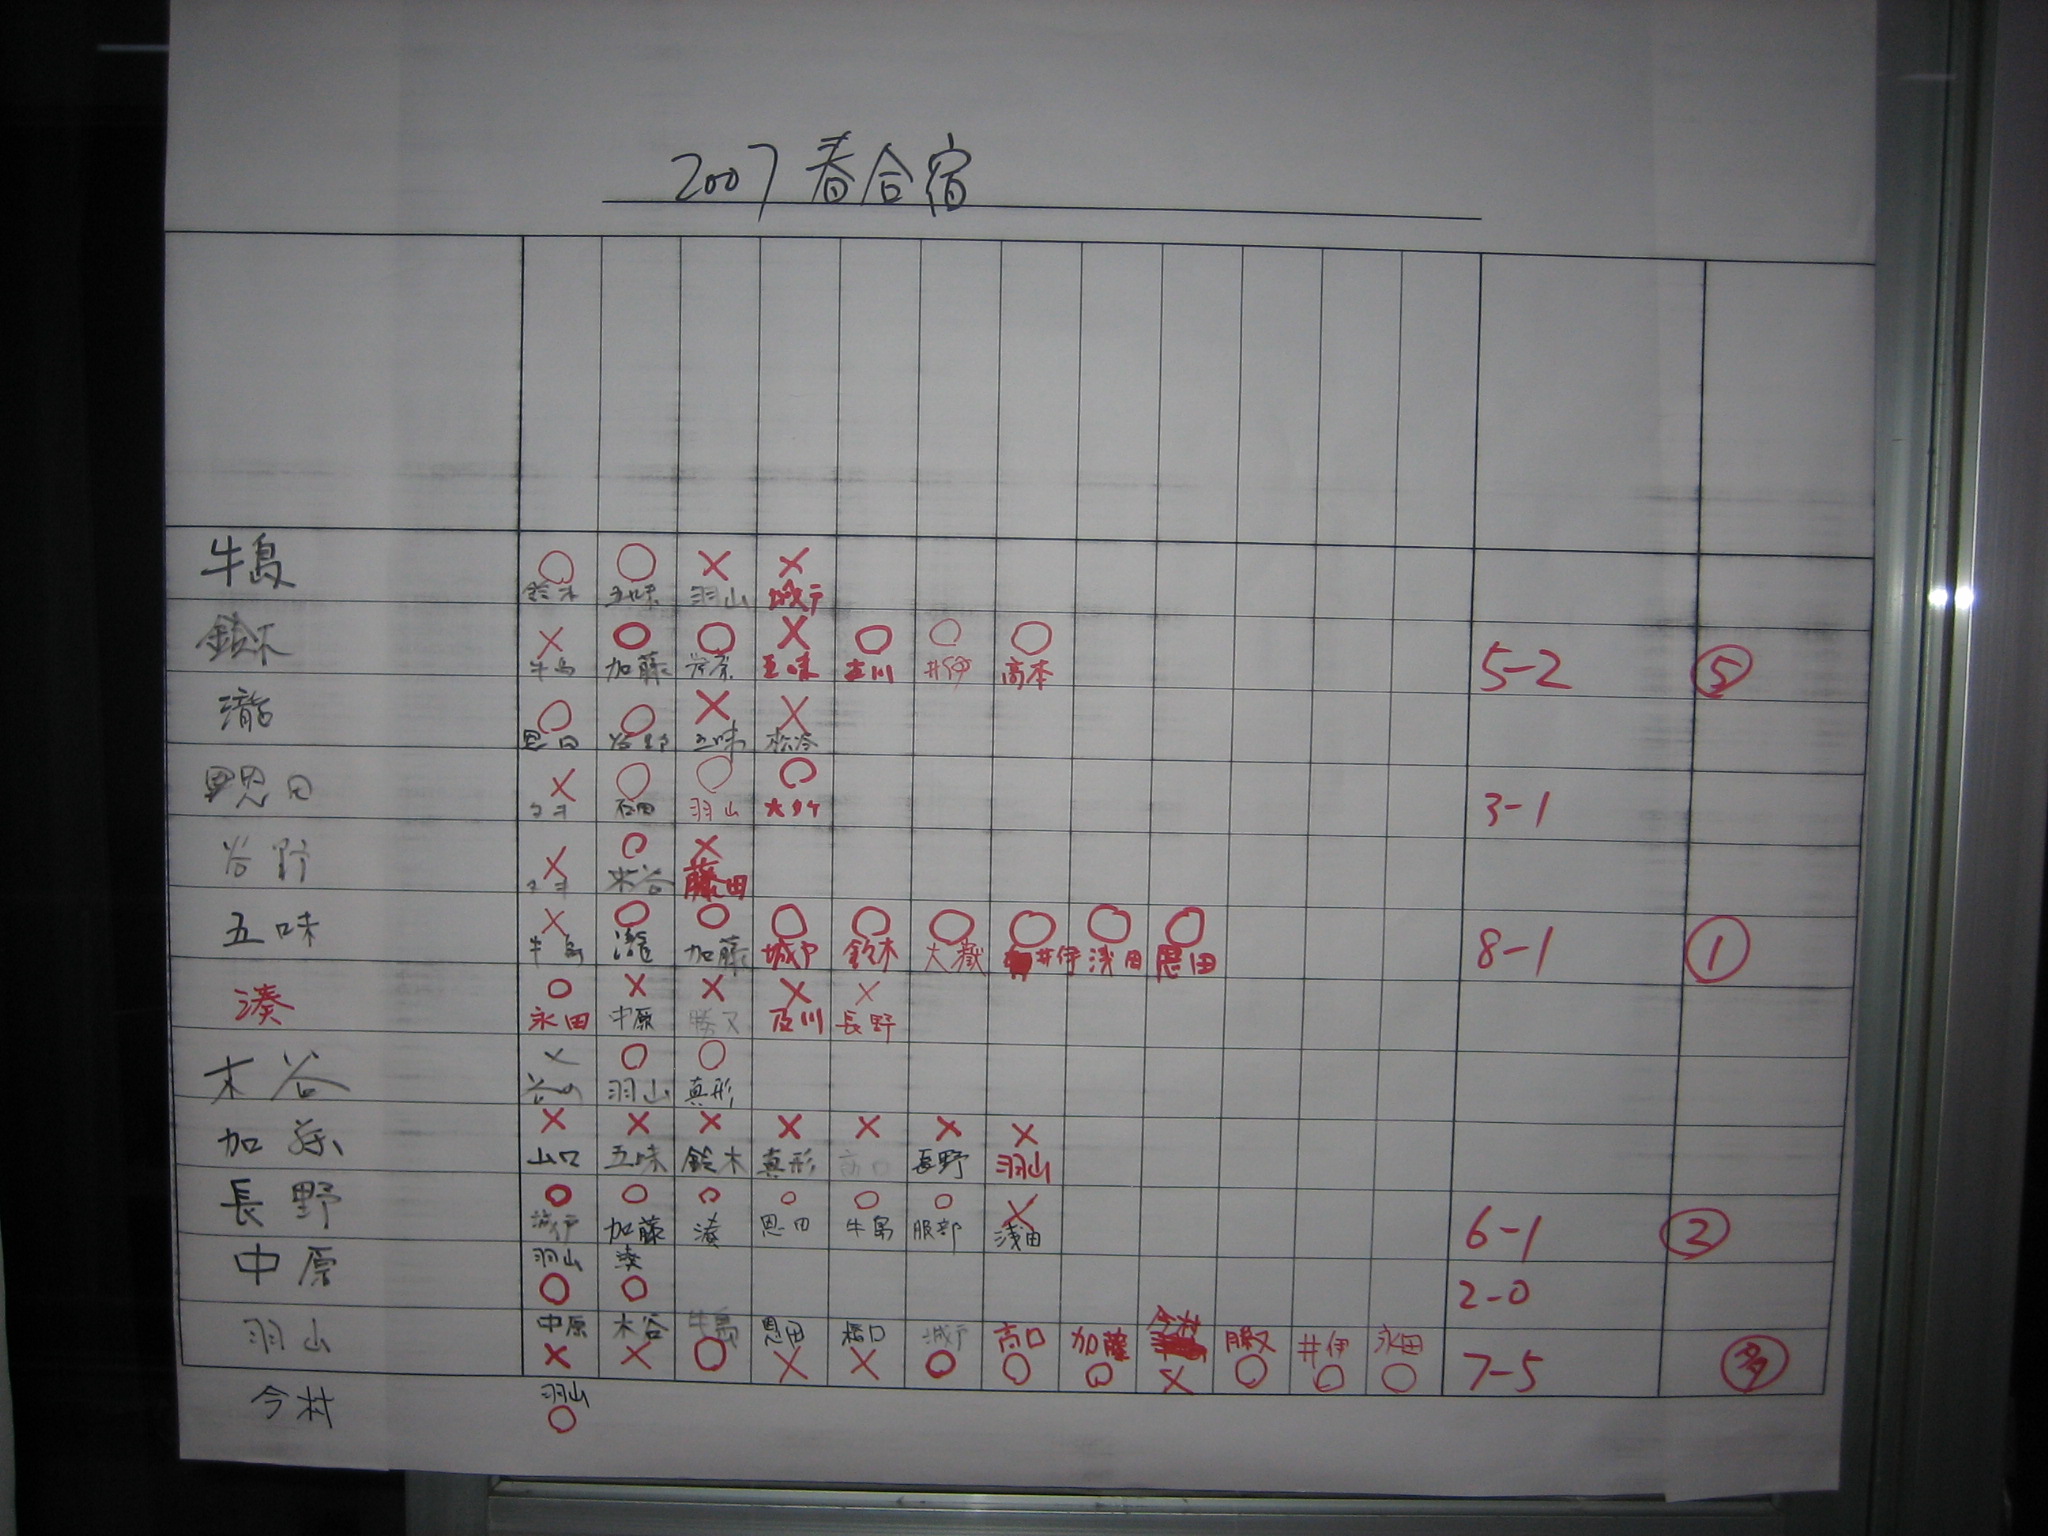 2007 春合宿
牛島 ○ ○ × ×
鈴木 五味 羽山 城戸
鈴木 × ○ ○ × ○ ○ ○ 5-2 ⑤
牛島 加藤 五味 井伊 高本
瀧 ○ ○ × ×
恩田 谷野 五味
恩田 × ○ ○ ○ 3-1
石田 羽山
谷野 × ○ ×
木谷 藤田
五味 × ○ ○ ○ ○ ○ ○ ○ ○ 8-1 ①
牛島 瀧 加藤 城戸 鈴木 井伊 浅田 恩田
湊 ○ × × × ×
永田 中原 勝又 及川 長野
木谷 × ○ ○
羽山 真形
加藤 × × × × × × ×
山口 五味 鈴木 真形 高口 長野 羽山
長野 ○ ○ ○ ○ ○ ○ × 6-1 ②
城戸 加藤 湊 恩田 牛島 服部 浅田
中原 羽山 湊 2-0
○ ○
羽山 中原 木谷 牛島 恩田 城戸 高口 加藤 今村 勝又 井伊 永田 7-5
× × ○ × × ○ ○ ○ × ○ ○ ○
今村 羽山
○